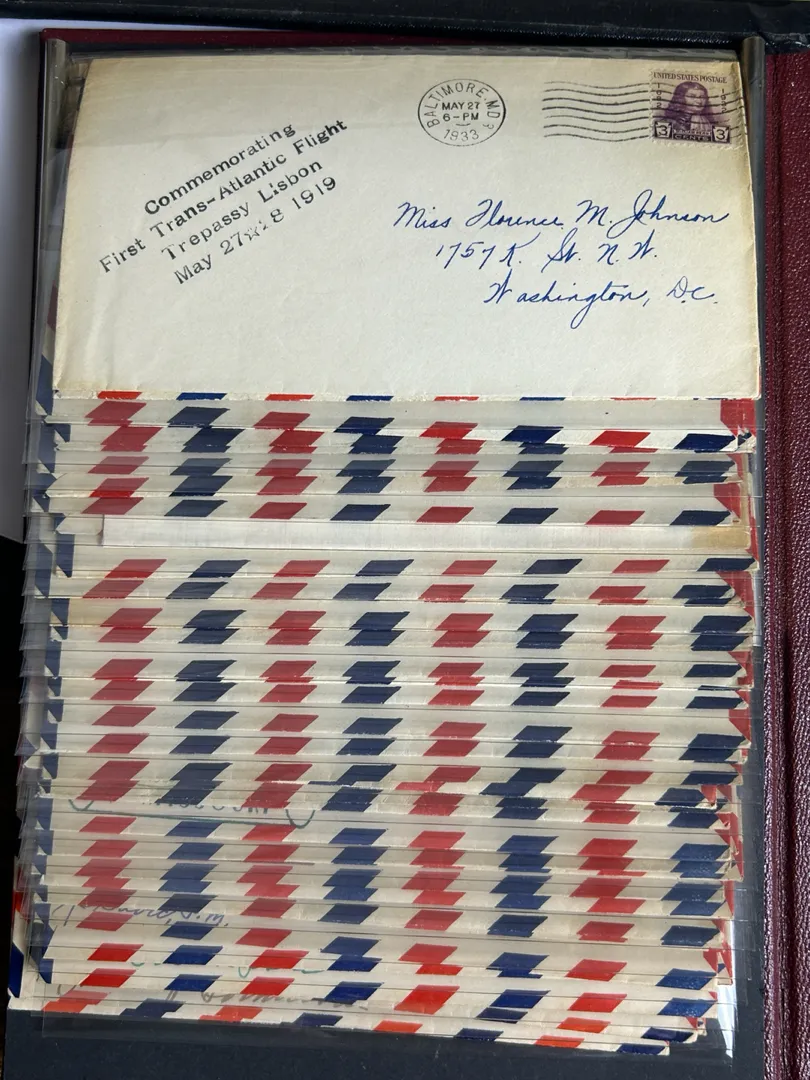 BALTIMORE, MD.
MAY 27
6-PM
1933
UNITED STATES POSTAGE
3 CENTS 3
Commemorating
First Trans-Atlantic Flight
Trepassy Lisbon
May 27 28 1919
Miss Florence M. Johnson
1757 K. St. N. W.
Washington, D.C.